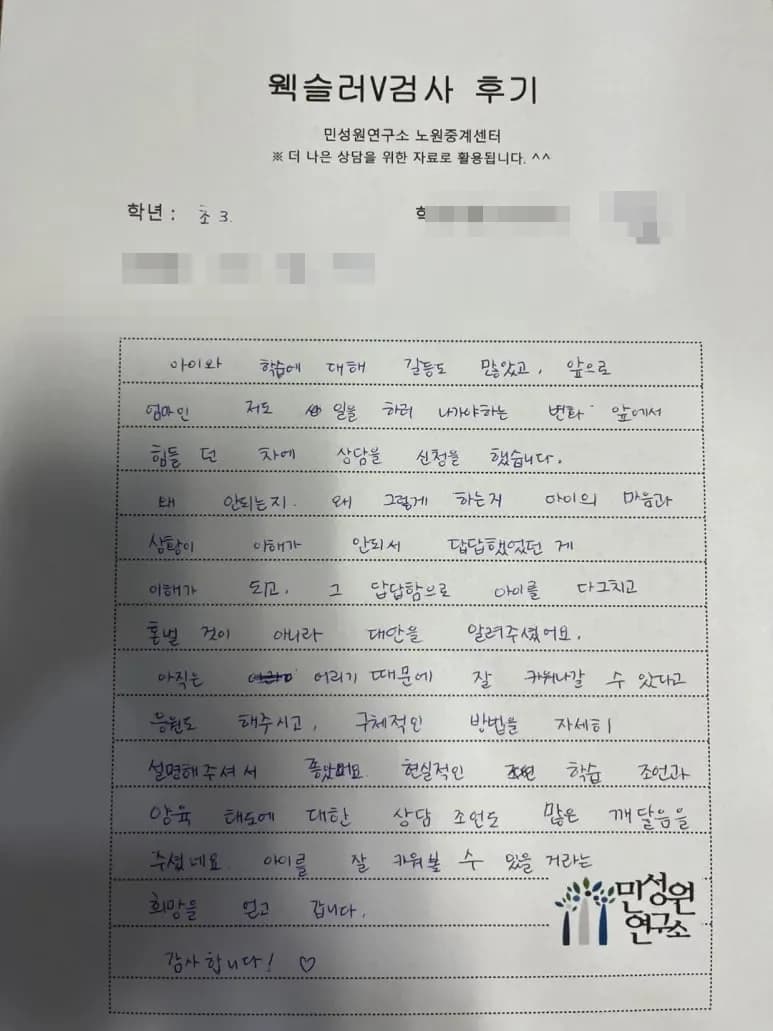 웩슬러V검사 후기
민성원연구소 노원중계센터
※ 더 나은 상담을 위한 자료로 활용됩니다. ^^
학년 : 초 3.
아이와 학습에 대해 갈등도 많았고, 앞으로
엄마인 저도 일을 하러 나가야하는 변화 앞에서
힘들던 차에 상담을 신청을 했습니다.
왜 안되는지. 왜 그렇게 하는지 아이의 마음과
상황이 이해가 안되서 답답했었던 게
이해가 되고, 그 답답함으로 아이를 다그치고
혼낼 것이 아니라 대안을 알려주셨어요.
아직은 어리기 때문에 잘 키워나갈 수 있다고
응원도 해주시고, 구체적인 방법을 자세히
설명해주셔서 좋았어요. 현실적인 학습 조언과
양육 태도에 대한 상담 조언도 많은 깨달음을
주셨네요. 아이를 잘 키워볼 수 있을 거라는
희망을 얻고 갑니다.
감사합니다! ♡
민성원
연구소